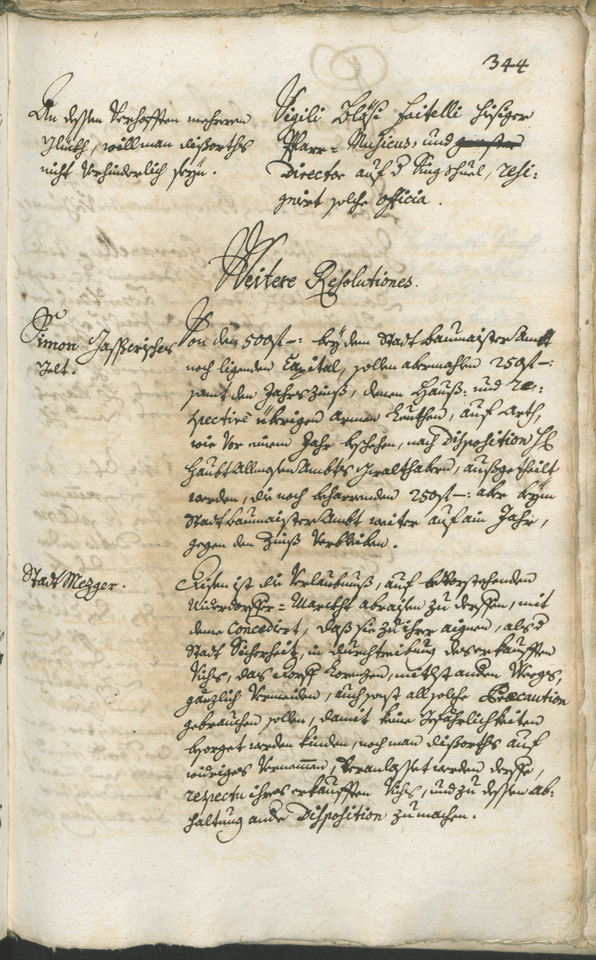 344
An dessen Verhofften mehreren
Glückh, will man dißorths
nicht Verhinderlich seyn.
Vigili Bläsi Faitelli hisiger
Pfarr= Musicus, und
Director auf d Singschuel, resi:
gnirt solche officia.
Weitere Resolutiones.
Simon Jasserisches
Gelt.
Von den 500 f –: bey dem Stadt Baumaister Ambt
noch ligenden Capital, sollen abermahlen 250 f –:
samt den Jahrs Zinß, denen Hauß= und re:
spective übrigen Armen Leuthen, auf Arth,
wie vor einem Jahr beschehen, nach Disposition H
Haubt Allmosen Ambts Gwalthabern, außgetheilt
werden, die noch beharrenden 250 f –: aber beym
Stadt Baumaister Ambt weiter auf ain Jahr,
gegen den Zinß Verbleiben.
Stadt Mezger.
ist die Verlaubnuß, auf bevorstehenden
Niderdorffer= Marckht abraisen zu derffen, mit
deme Concedirt, daß sie zu ihrer aignen, als d
Stadt Sicherheit, in durchtreibung des erkaufften
Vichs, das dorff Lorenzen, mithst anderen Weegs,
gänzlich Vermeiden, auch sonst all solche Præcaution
gebrauchen sollen, damit keine Gefährlichkeiten
besorget werden kinden, noch man dißorths auf
widriges Vernemmen, Veranlasset werden derffe,
respectu ihres erkaufften Vichs, und zu dessen ab:
haltung andere Disposition zu machen.